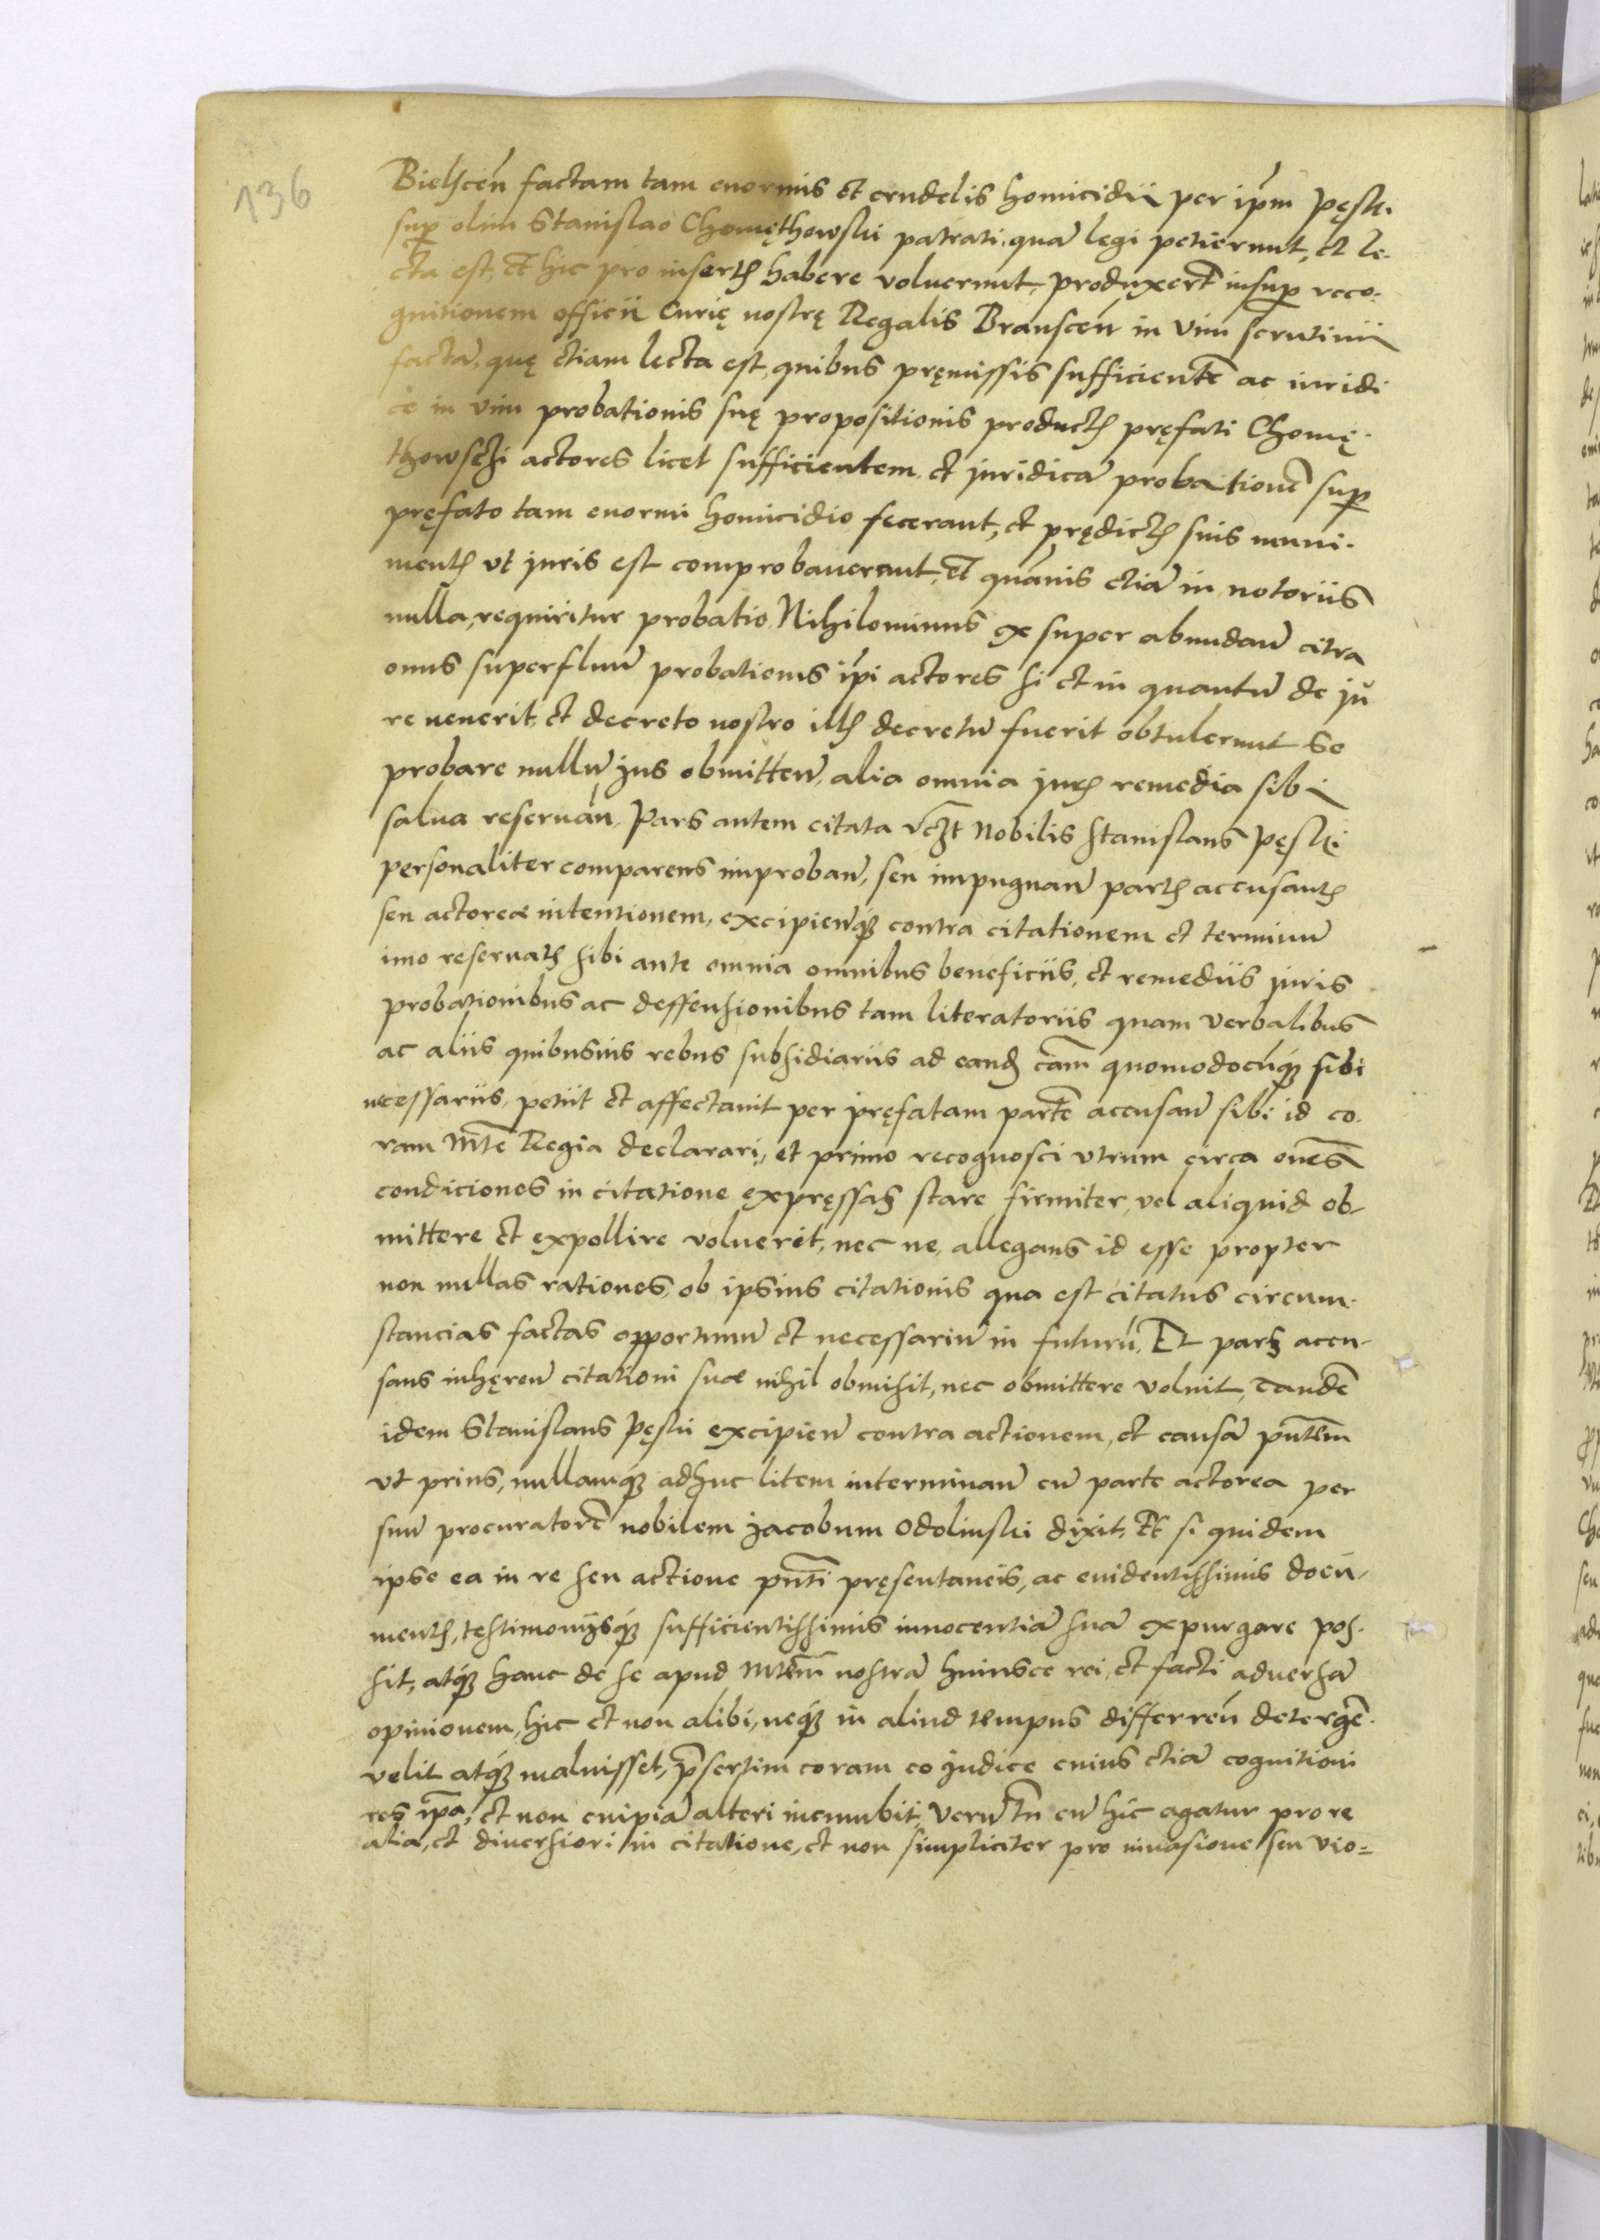 136
Bielscen̄ factam tam enormis et crudelis homicidii per ip̄m Pęski
sup̱ olim Stanislao Chomęthowski patrati, quā legi petierunt, et le-
cta est, et hic pro insertꝭ habere voluerunt, produxert̄ insup̱ reco-
gnitionem officii Curię nostrę Regalis Branscen̄ in vim scrutinii
factā, quę etiam lecta est, quibus pręmissis sufficientē ac iuridi
ce in vim probationis suę propositionis productꝭ pręfati Chomę-
thowschi actores licet sufficientem et juridicā probationē sup̱
pręfato tam enormi homicidio fecerant, et prędictꝭ suis muni-
mentꝭ vt juris est comprobauerunt, Et quāuis etiā in notoriis
nulla requiritur probatio Nihilominus ex super abundan̄ citra
onus superfluū probationis ip̄i actores si et in quantū de ju
re venerit, et decreto nostro illꝭ decretū fuerit obtulerunt se
probare nullū jus obmitten̄, alia omnia jurꝭ remedia sibi
salua reseruan̄, Pars autem citata vczt Nobilis Stanislaus Pęski
personaliter comparens improban̄, seu impugnan̄ partꝭ accusantꝭ
seu actoreæ intentionem, excipienq̄ꝫ contra citationem et terminū
imo reseruatꝭ sibi ante omnia omnibus beneficiis, et remediis juris
probationibus ac deffensionibus tam literatoriis quam verbalibus
ac aliis quibusuis rebus subsidiariis ad eandꝭ cām quomodocūqꝫ sibi
necessariis, petiit et affectauit per pręfatam partē accusan̄ sibi id co-
ram Mt̄e Regia declarari, et primo recognosci vtrum circa om̄es
condiciones in citatione expręssas stare firmiter, vel aliquid ob-
mittere et expollire voluerit, nec ne, allegans id esse propter
non nullas rationes, ob ipsius citationis qua est citatus circum-
stancias factas opportunū et necessariū in futurū, Et pars accu-
sans inhęren̄ citationi suæ nihil obmisit, nec obmittere voluit, Tandē
idem Stanislaus Pęski excipien̄ contra actionem, et causā pn̄tem
vt prius, nullamqꝫ adhuc litem interminan̄ cū parte actorea per
suū procuratorē nobilem Jacobum Odolinski dixit, Et si quidem
ipse ea in re seu actione pn̄ti pręsentaneis, ac euidentissimis docu-
mentꝭ, testimonijsqꝫ sufficientissimis innocentiā suā expurgare pos-
sit, atqꝫ hanc de se apud Mt̄em nostrā huiusce rei, et facti aduersā
opinionem, hic et non alibi, neqꝫ in aliud tempus differren̄ detergē-
velit atqꝫ maluisset, p̄sertim coram eo judice cuius etiā cognitioni
res ip̄a, et non cuipiā alteri incumbit, Verū tn̄ cū hic agatur pro re
alia, et diuersiori in citatione, et non simpliciter pro inuasione seu vio=